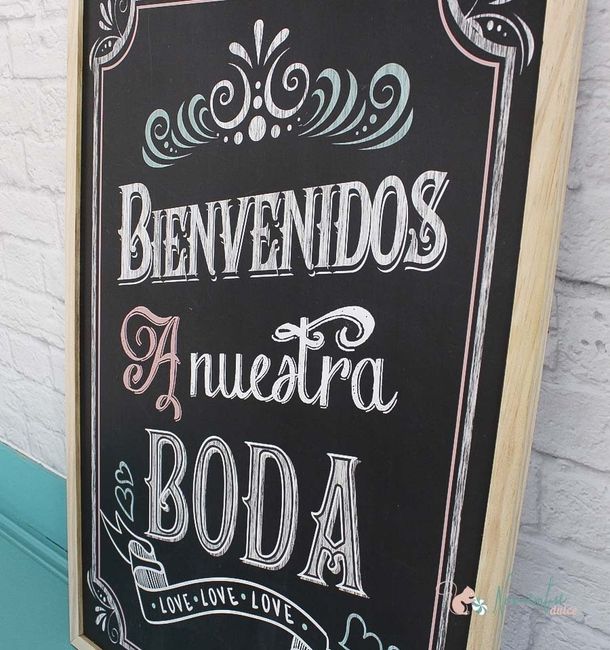 BIENVENIDOS
A nuestra
BODA
·LOVE·LOVE·LOVE·
dulce